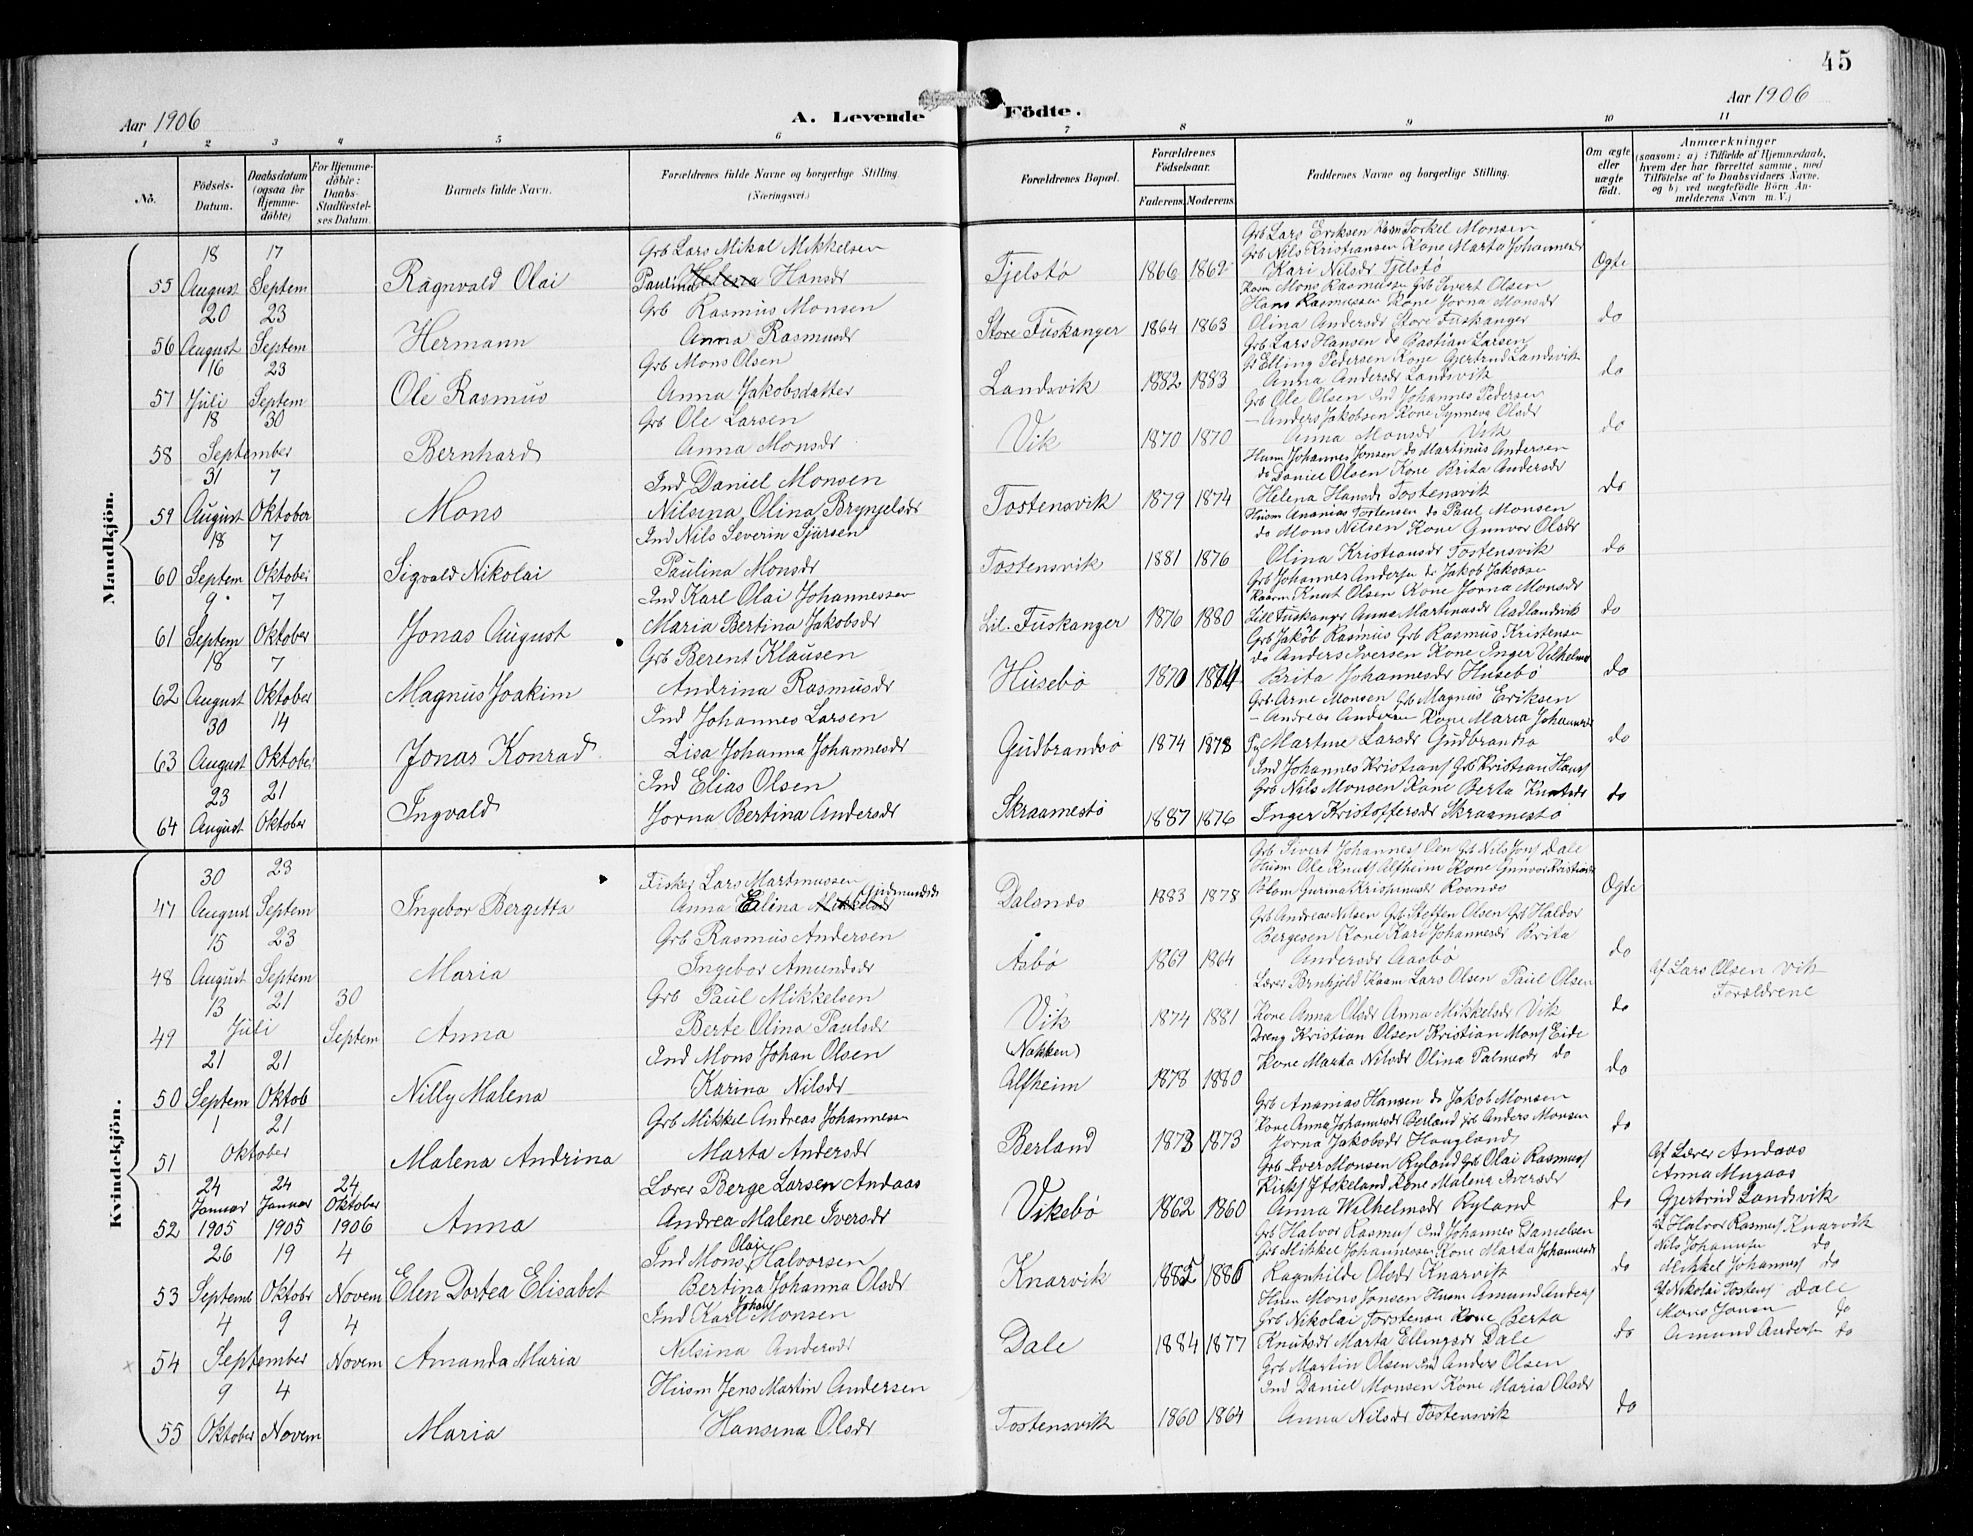 45
Aar 1906
A. Levende Födte.
Aar 1906
1 2 3 4 5 6 7 8 9 10 11
No.
Födsels-Datum.
Daabsdatum (ogsaa for Hjemme-döbte)
For Hjemme-döbte: Daabs-Stadfæstel-ses Datum.
Barnets fulde Navn.
Forældrenes fulde Navne og borgerlige Stilling.
(Næringsvei.)
Forældrenes Bopæl.
Forældrenes Födselsaar.
Faderens. Moderens.
Faddernes Navne og borgerlige Stilling.
Om ægte eller uægte født.
Anmærkninger
(saasom: a) i Tilfælde af Hjemmedaab,
hvem der har forrettet samme, med
Tilföielse af to Daabsvidners Navne,
og b) ved uægtefödte Börn An-
melderens Navn m. V.)
Mandkjön.
55 18 August 17 Septem Ragnvald Olai
Grb Lars Mikal Mikkelsen
Paulina Helena Hansdr
Tjelstø 1866 1862
Grb Lars Eriksen Kaarm Torkel Monsen
Grb Nils Kristiansen Kone Marta Johannesdr
Kari Nilsdr Tjelstø
Ægte
56 20 August 23 Septem Hermann
Grb Rasmus Monsen
Anna Rasmusdr
Store Fuskanger 1864 1863
Kaarm Mons Rasmussen Grb Sivert Olsen
Hans Rasmussen Kone Jorna Monsdr
Olina Andersdr Store Fuskanger
do
57 16 Juli 23 Septem Ole Rasmus
Grb Mons Olsen
Anna Jakobsdatter
Landsvik 1882 1883
Grb Lars Hansen do Bastian Larsen
Elling Pedersen Kone Gjertrud Landsvik
Anna Andersdr Landsvik
do
58 18 30 September Bernhard
Grb Ole Larsen
Anna Monsdr
Vik 1870 1870
Grb Ole Olsen Ind Johannes Pedersen
- Anders Jakobsen Kone Synneva Olsdr
Anna Monsdr Vik
do
59 31 August 7 Oktober Mons
Ind Daniel Monsen
Nilsina Olina Brynjelsdr
Tostensvik 1879 1874
Husm Johannes Jonsen do Martinus Andersen
do Daniel Olsen Kone Brita Andersdr
Helena Hansdr Tostensvik
do
60 18 Septem 7 Oktober Sigvald Nikolai
Ind Nils Severin Sjursen
Paulina Monsdr
Tostensvik 1881 1876
Husm Ananias Tostensen do Paul Monsen
do Mons Nilsen Kone Gunvor Olsdr
Olina Kristiansdr Tostensvik
do
61 9 Septem 7 Oktober Jonas August
Ind Karl Olai Johannessen
Maria Bertina Jakobsdr
Lil. Fuskanger 1876 1880
Grb Johannes Andersen do Jakob Jakobsen
Kaarm Knut Olsen Kone Jorna Monsdr
Lill Fuskanger Anna Martinusdr Aadlandsvik
do
62 18 August 7 Oktober Magnus Joakim
Grb Berent Klausen
Andrina Rasmusdr
Husebø 1870 1884
Grb Jakob Rasmus Grb Rasmus Kristensen
do Anders Iversen Kone Inger Vilhelmsdr
Brita Johannesdr Husebø
do
63 30 August 14 Oktober Jonas Konrad
Ind Johannes Larsen
Lisa Johanna Johannesdr
Gudbrandsø 1874 1878
Grb Arne Monsen Grb Magnus Eriksen
- Andreas Andersen Kone Maria Johannesdr
Pg Martine Larsdr Gudbrandsø
do
64 23 August 21 Oktober Ingvald
Ind Elias Olsen
Jorna Bertina Andersdr
Skraamestø 1887 1876
Ind Johannes Kristians Grb Kristian Hans
Grb Nils Monsen Kone Berta Knutsdr
Inger Kristoffersdr Skraamestø
do
Kvindekjön.
47 30 August 23 Septem Ingebor Bergitta
Fisker Lars Martinussen
Anna Elina Mikkelsdr Gudmundsdr
Dalsnes 1883 1878
Grb Sivert Johannes Oen Grb Nils Jons Dale
Husm Ole Knuts Alfheim Kone Gunvor Kristiansdr
Blom Gurina Krispinusdr Rosnes
Ægte
48 15 August 23 Septem Maria
Grb Rasmus Andersen
Ingebor Amundsdr
Asbø 1869 1864
Grb Andreas Nilsen Grb Steffen Olsen Grb Haldor
Bergesen Kone Kari Johannesdr Brita
Andersdr Aasbø
do
49 13 21 Juli 30 Septem Anna
Grb Paul Mikkelsen
Berte Olina Paulsdr
Vik (Nakken) 1874 1881
Lærer Brnhjeld Kaarm Lars Olsen Paul Olsen
Kone Anna Olsdr Anna Mikkelsdr Vik
do
Af Lars Olsen Vik
Forældrene
50 21 Septem 21 Oktob Nilly Malena
Ind Mons Johan Olsen
Karina Nilsdr
Alfheim 1878 1880
Dreng Kristian Olsen Kristian Mons Eide
Kone Marta Nilsdr Olina Palmesdr do
do
51 1 21 Oktober Malena Andrina
Grb Mikkel Andreas Johannessen
Marta Andersdr
Berland 1873 1873
Grb Ananias Hansen do Jakob Monsen
Kone Anna Johannesdr Berland Grb Anders Monsen
Jorna Jakobsdr Haagland
do
52 24 Januar 1905 24 Januar 1905 24 Oktober 1906 Anna
Lærer Berge Larsen Andaas
Andrea Malene Iversdr
Vikebø 1862 1860
Grb Iver Monsen Ryland Grb Olai Rasmus
Kirks Itkeland Kone Malena Iversdr
Anna Wilhelmsdr Ryland
do
Af Lærer Andaas
Anna Mugaas
Gjertrud Landsvik
53 26 Septemb 19 Oktobr 4 Novem Elen Dortea Elisabet
Ind Mons Olaje Halvorsen
Bertina Johanna Olsdr
Knarvik 1885 1886
Grb Halvor Rasmus Ind Johannes Danielsen
Grb Mikkel Johannessen Kone Marta Johannesdr
Ragnhilde Olsdr Knarvik
do
Af Halvor Rasmus Knarvik
Nils Johannesen do
Mikkel Johannes do
54 4 9 September 4 Novem Amanda Maria
Ind Karl Johan Monsen
Nilsina Andersdr
Dale 1884 1877
Husm Mons Jonsen Husm Amund Anders
Grb Nikolai Torstensen Kone Berta
Knutsdr Marta Ellingsdr Dale
do
Af Nikolai Tostens Dale
Mons Jonsen do
Amund Anders do
55 9 Oktober 4 Novem Maria
Husm Jens Martin Andersen
Hansina Olsdr
Tostensvik 1860 1864
Grb Martin Olsen Ind Anders Olsen
Ind Daniel Monsen Kone Maria Olsdr
Anna Nilsdr Tostensvik
do